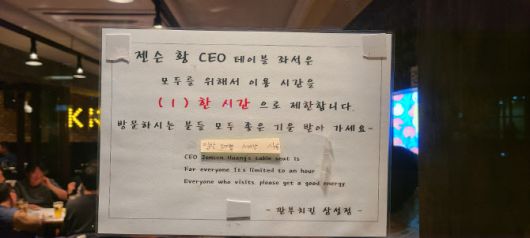 젠슨 황 CEO 테이블 좌석은
모두를 위해서 이용 시간을
(1) 한 시간 으로 제한합니다.
방문하시는 분들 모두 좋은 기운 받아 가세요~
CEO Jensen Huang's table seat is
For everyone It's limited to an hour
Everyone who visits please get a good energy
- 깐부치킨 삼성점 -
K